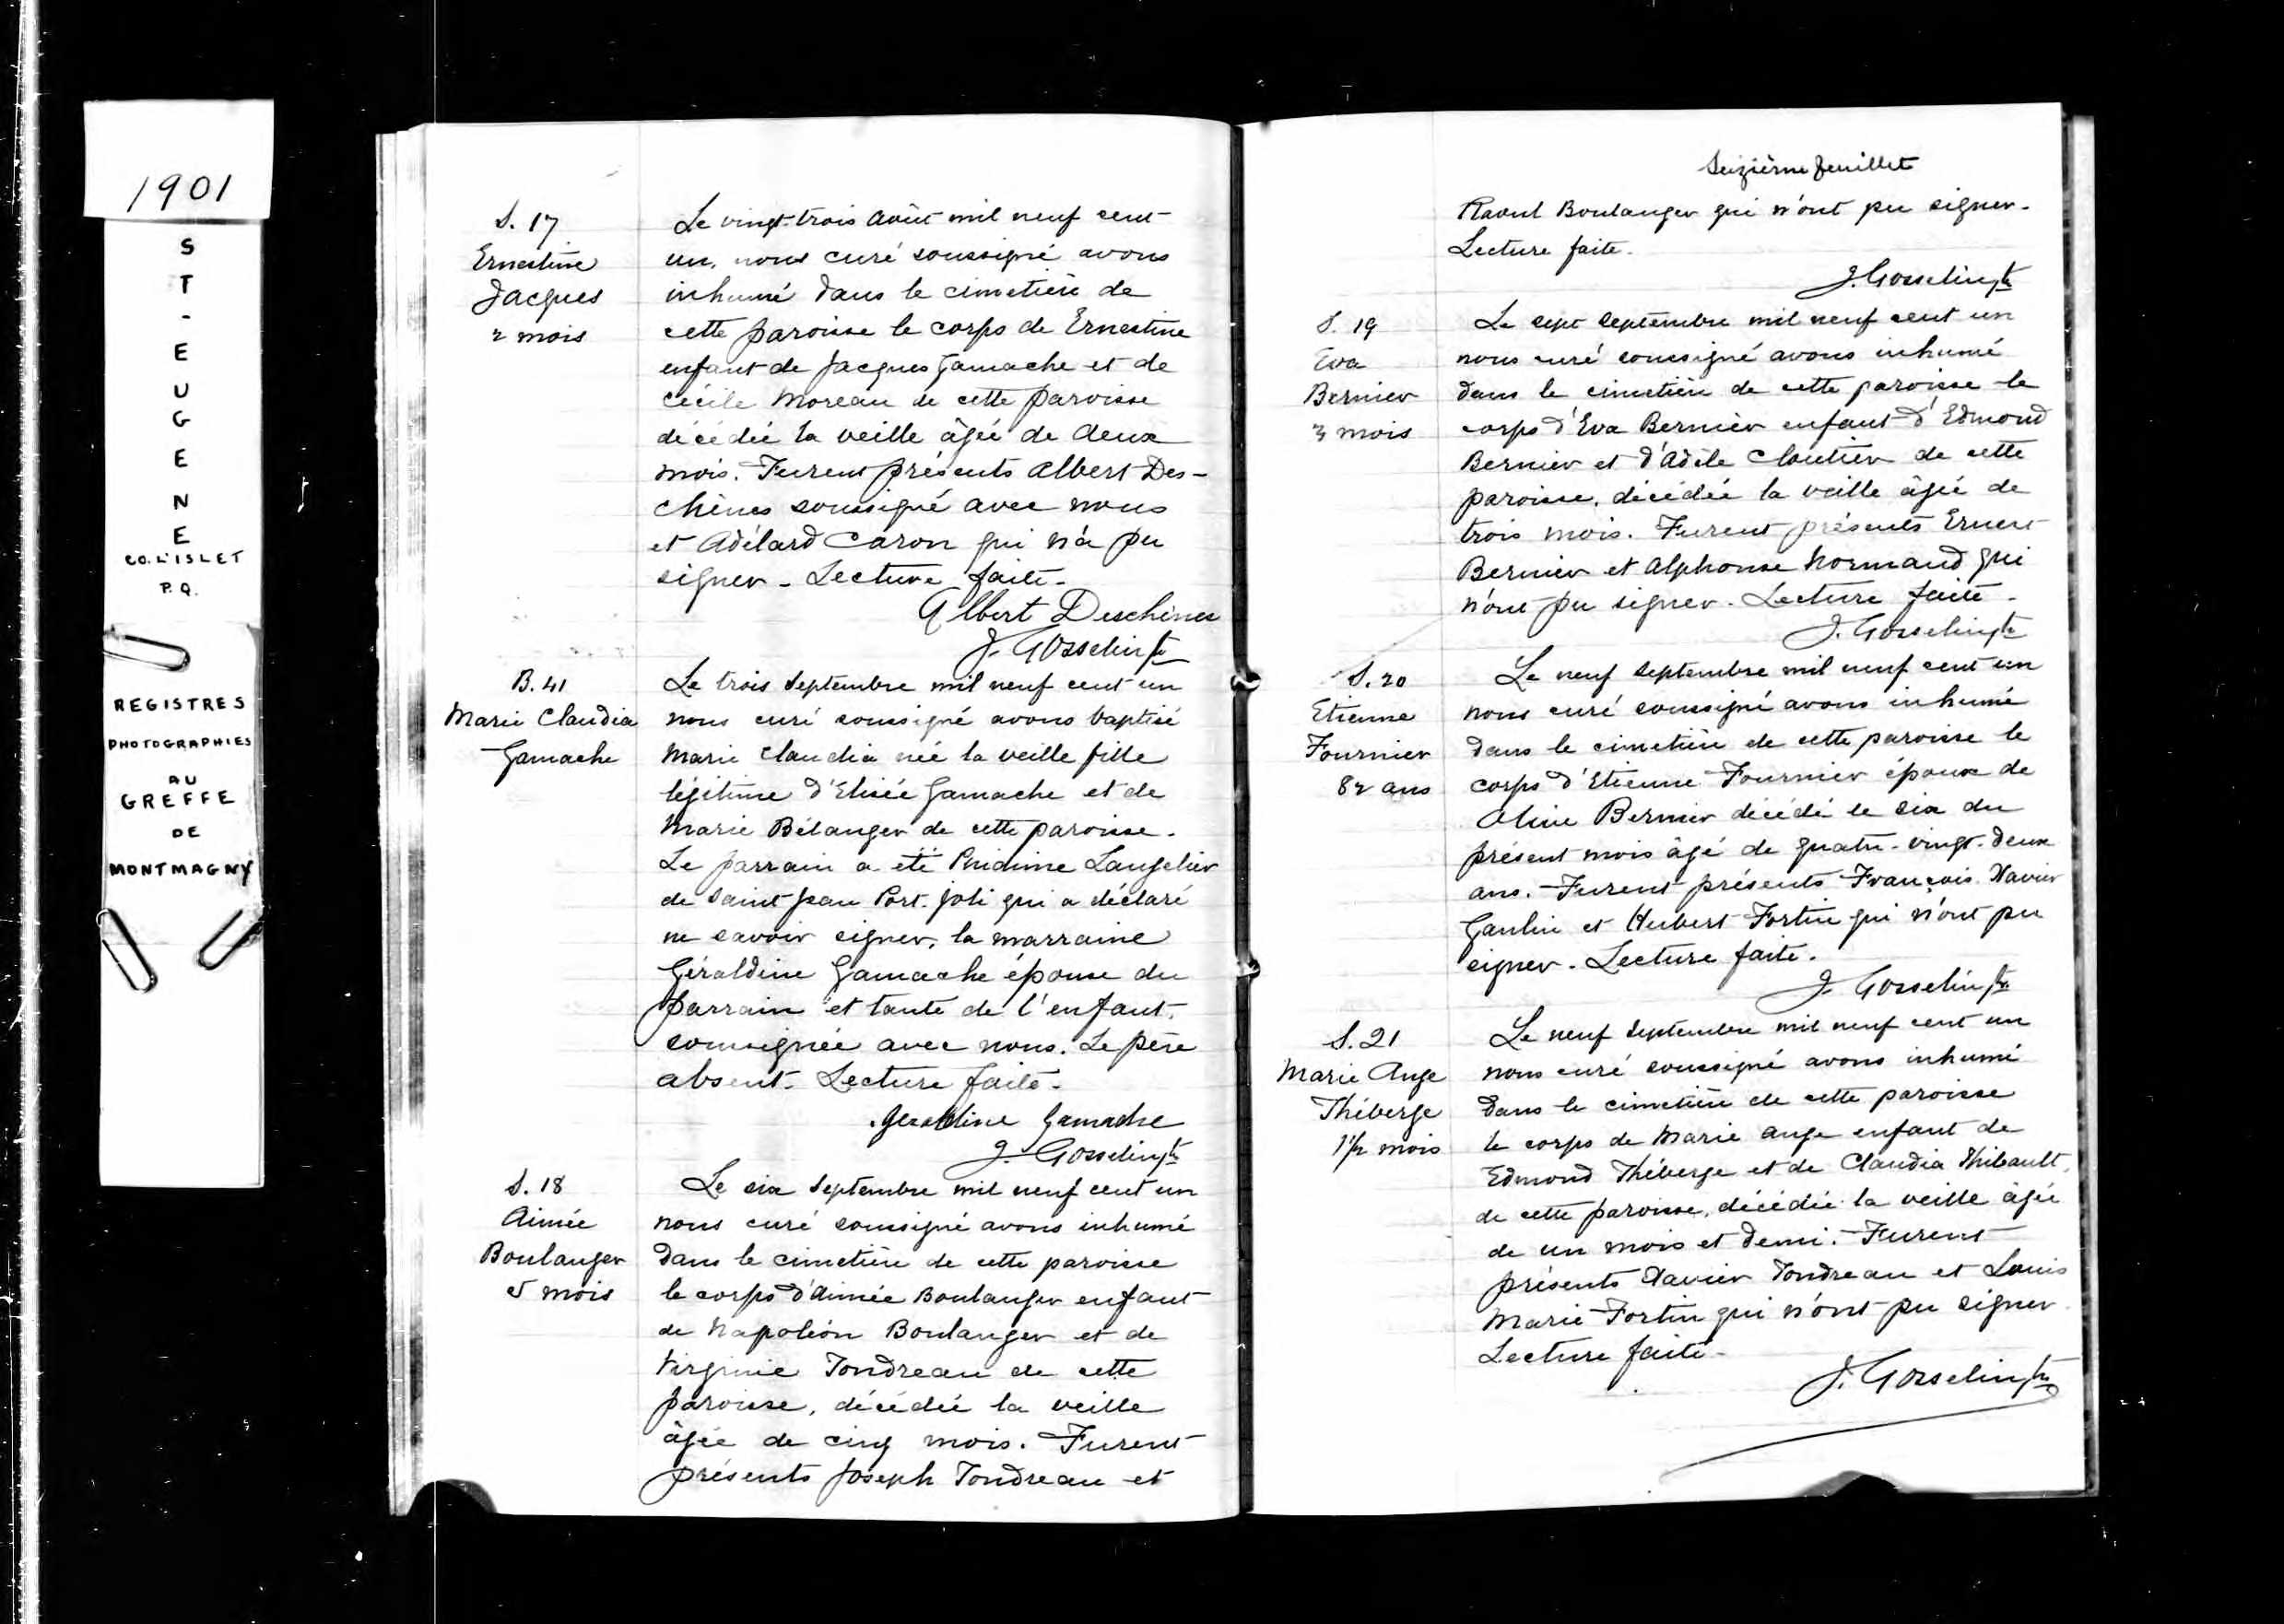 1901
ST-EUGENE
CO. L'ISLET
P.Q.
REGISTRES
PHOTOGRAPHIES
AU
GREFFE
DE
MONTMAGNY
S. 17
Ernestine
Jacques
2 mois
Le vingt-trois août mil neuf cent
un, nous curé soussigné avons
inhumé dans le cimetière de
cette paroisse le corps de Ernestine
enfant de Jacques Gamache et de
Cécile Moreau de cette paroisse
décédée la veille âgée de deux
mois. Furent présents Albert Des-
chênes soussigné avec nous
et Adélard Caron qui n'a pu
signer - Lecture faite.
Albert Deschênes
J. Gosselin ptr
B. 41
Marie Claudia
Gamache
Le trois septembre mil neuf cent un
nous curé soussigné avons baptisé
Marie Claudia née la veille fille
légitime d'Elisée Gamache et de
Marie Bélanger de cette paroisse.
Le parrain a été Langelier
de Saint Jean Port-Joli qui a déclaré
ne savoir signer, la marraine
Géraldine Gamache épouse du
parrain et tante de l'enfant,
soussignée avec nous. Le père
absent. Lecture faite.
Geraldine Gamache
J. Gosselin ptr
S. 18
Aimée
Boulanger
5 mois
Le six septembre mil neuf cent un
nous curé soussigné avons inhumé
dans le cimetière de cette paroisse
le corps d'Aimée Boulanger enfant
de Napoléon Boulanger et de
Virginie Tondreau de cette
paroisse, décédée la veille
âgée de cinq mois. Furent
présents Joseph Tondreau et
Seizième feuillet
Raoul Boulanger qui n'ont pu signer.
Lecture faite.
J. Gosselin ptr
S. 19
Eva
Bernier
3 mois
Le sept septembre mil neuf cent un
nous curé soussigné avons inhumé
dans le cimetière de cette paroisse le
corps d'Eva Bernier enfant d'Edmond
Bernier et d'Adèle Cloutier de cette
paroisse, décédée la veille âgée de
trois mois. Furent présents Ernest
Bernier et Alphonse Normand qui
n'ont pu signer. Lecture faite.
J. Gosselin ptr
S. 20
Etienne
Fournier
82 ans
Le neuf septembre mil neuf cent un
nous curé soussigné avons inhumé
dans le cimetière de cette paroisse le
corps d'Etienne Fournier époux de
Bernier décédé le six du
présent mois âgé de quatre-vingt-deux
ans. Furent présents François Xavier
Gaulin et Hubert Fortin qui n'ont pu
signer. Lecture faite.
J. Gosselin ptr
S. 21
Marie Ange
Théberge
1 1/2 mois
Le neuf septembre mil neuf cent un
nous curé soussigné avons inhumé
dans le cimetière de cette paroisse
le corps de Marie Ange enfant de
Edmond Théberge et de Claudia Thibault,
de cette paroisse, décédée la veille âgée
de un mois et demi. Furent
présents Xavier Tondreau et Louis
Marie Fortin qui n'ont pu signer
Lecture faite.
J. Gosselin ptr